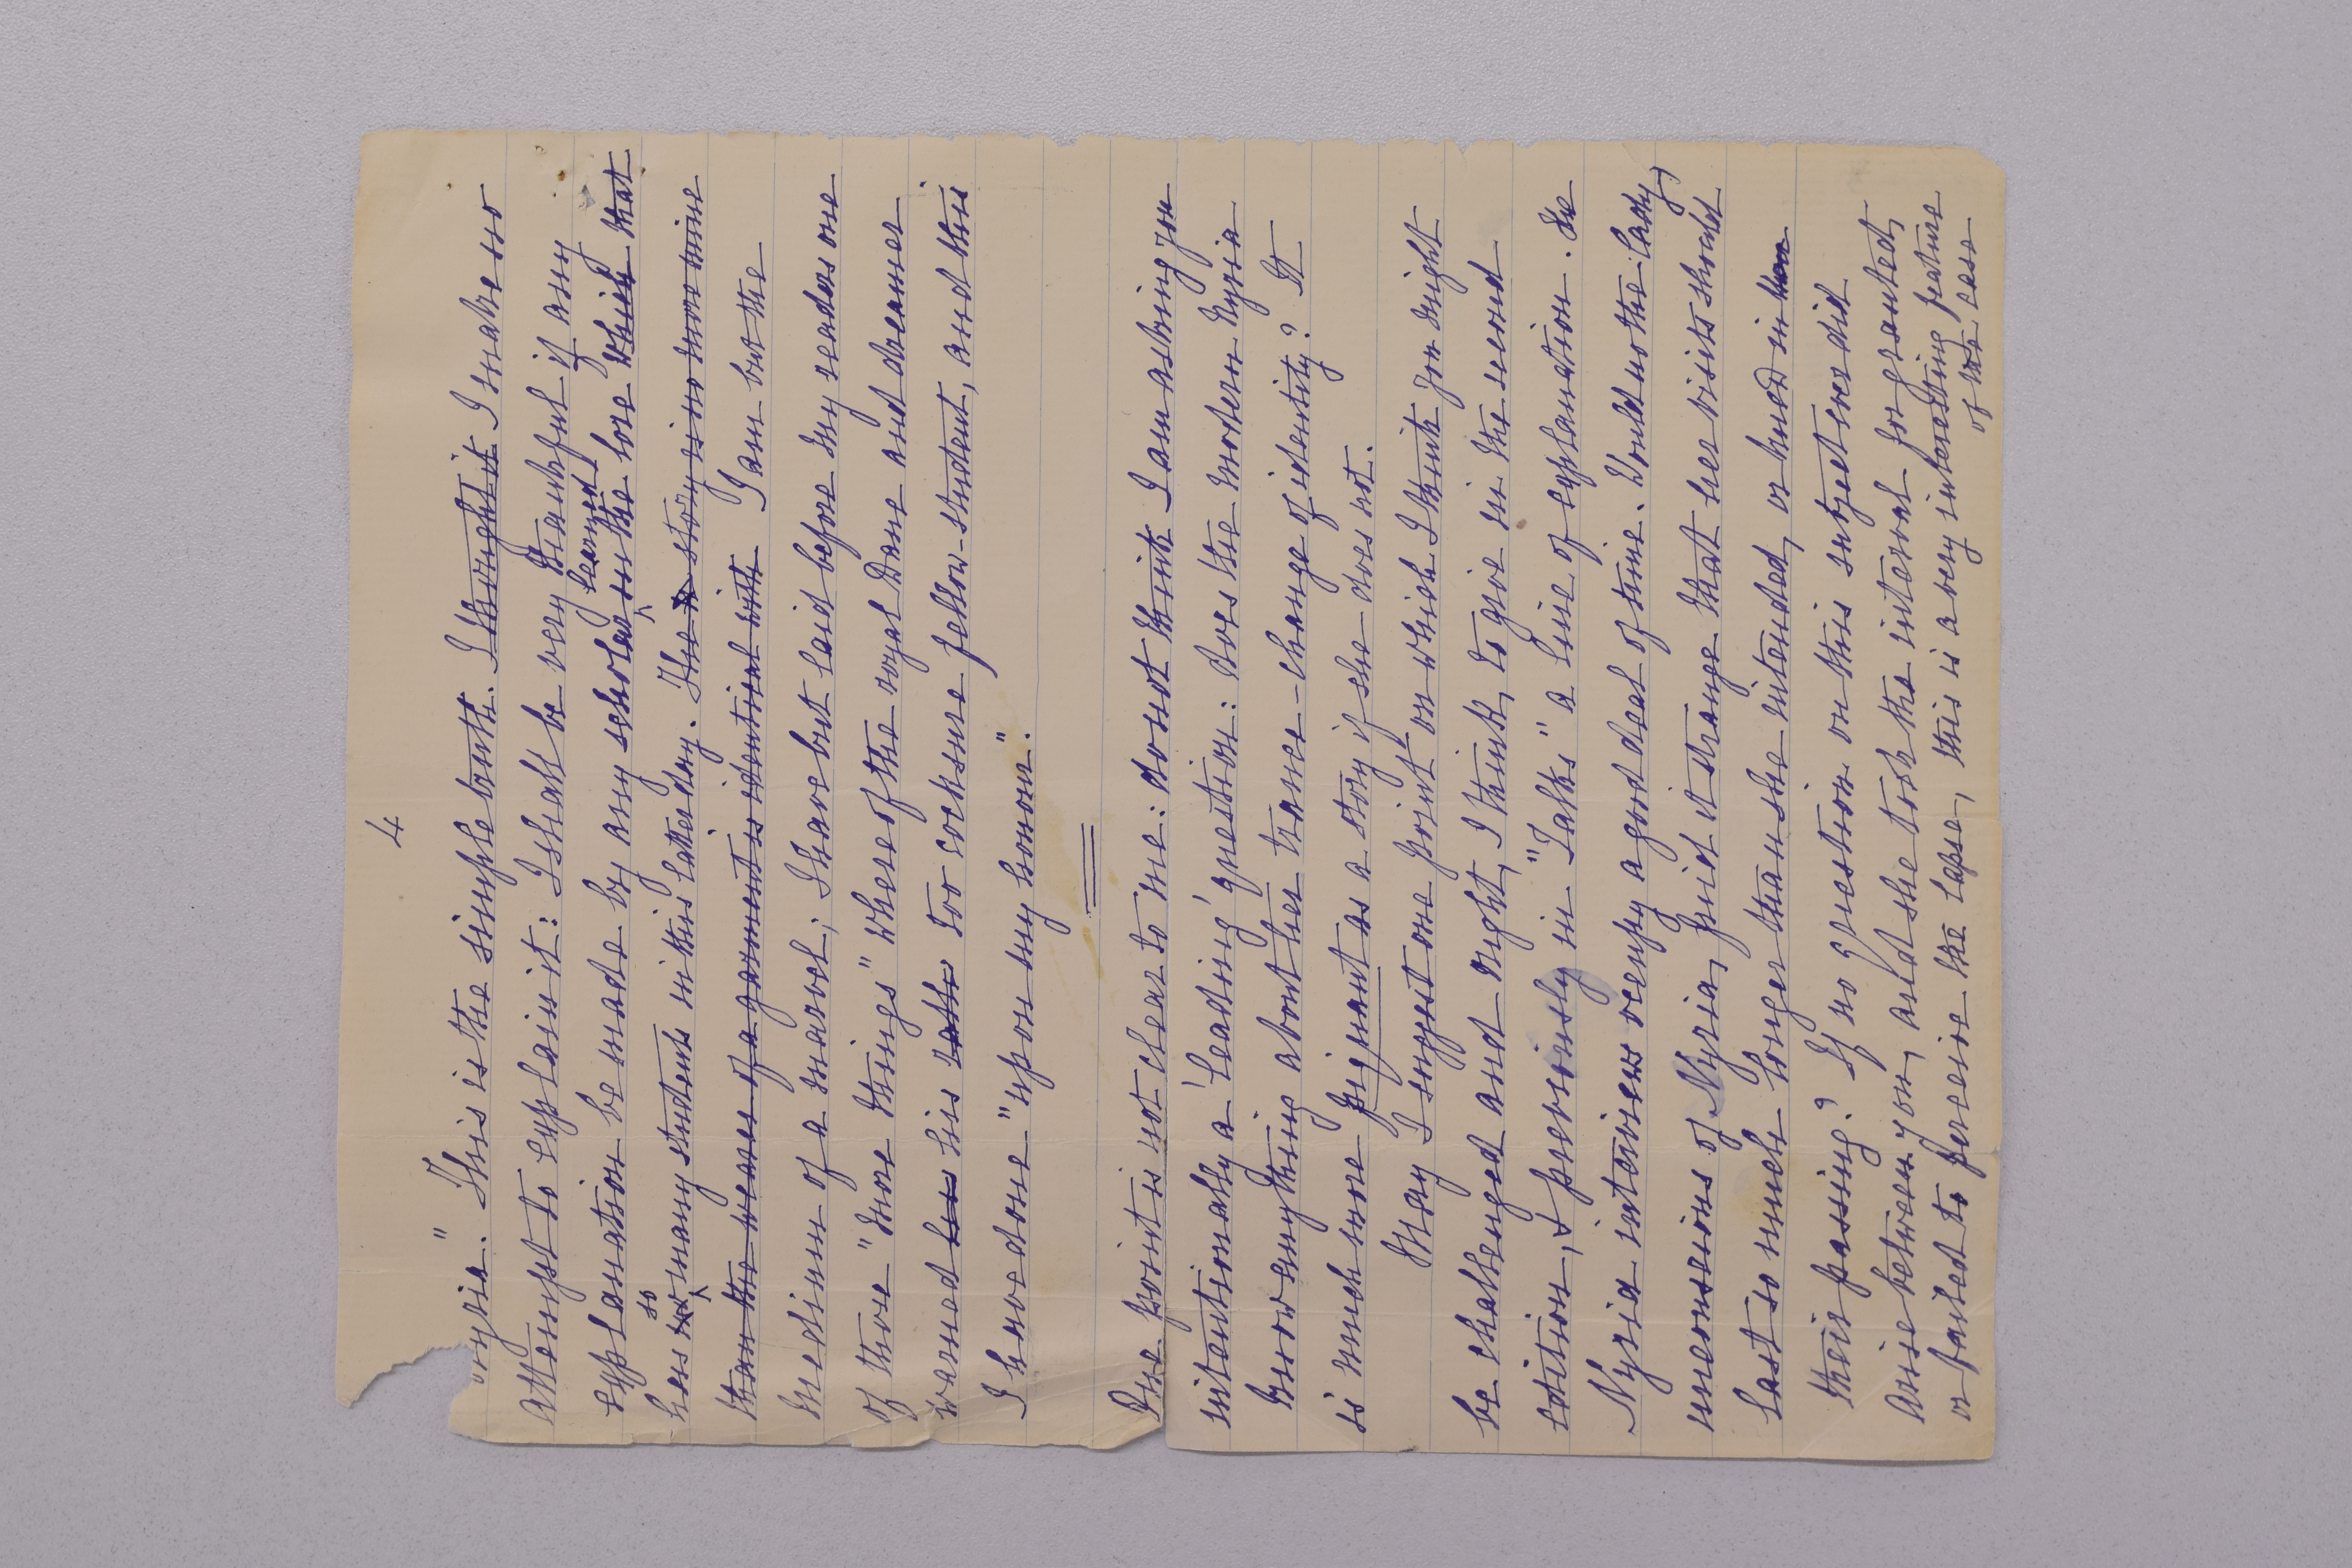 4
"Nyria." This is the simple truth. I thought it I make no
attempt to explain it: I shall be very thankful if any
explanation be made by any scholar learned in the lore which that
has so many students in this latter day. The story is no more mine
than the wearer of a garment is identical with I am but the
medium of a marvel; I have but laid before my readers one
of those "more things" whereof the royal Dane and dreamer
warned his his rather too cocksure fellow-student, and this
I have done "upon my honour".
One point is not clear to me: do not think I am asking you
intentionally a 'leading' question: does the modern Nyria
know anything about her trance-change of identity? It
is much more piquant as a story if she does not.
May I suggest one point on which I think you might
be challenged and might, I think, to give in the second
edition, & previously in "Talks" a line of explanation. The
Nyria interviews occupy a good deal of time. Would not the lady,
unconscious of Nyria, find it strange that her visits should
last so much longer than she intended, or knew in
their passing? If no question on this subject ever did
arise between you, and she took the interval for granted,
or failed to perceive the lapse, this is a very interesting feature
of the case